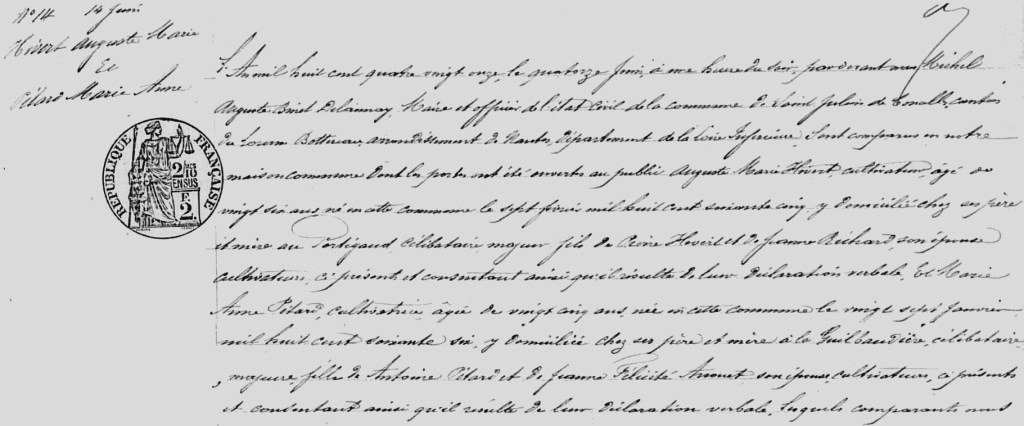 N° 14 14 Juin
Hivert Auguste Marie
Et
Pitard Marie Anne
RÉPUBLIQUE FRANÇAISE
2/10
EN SUS
F.
2.
L'An mil huit cent quatre vingt onze le quatorze Juin, à une heure du soir, par devant nous Michel
Auguste Delaunay, Maire et officier de l'état Civil de la commune de Saint Julien de Concelles, canton
du Loroux Bottereau, arrondissement de Nantes, département de la Loire Inférieure, Sont comparus en notre
maison commune dont les portes ont été ouvertes au public Auguste Marie Hivert, cultivateur, âgé de
vingt six ans, né en cette commune le sept février mil huit cent soixante cinq, y domicilié chez ses père
et mère au célibataire majeur, fils de Pierre Hivert et de Jeanne Richard, son épouse
cultivateurs, ci présents et consentant ainsi qu'il résulte de leur déclaration verbale, Et Marie
Anne Pitard, cultivatrice, âgée de vingt cinq ans, née en cette commune le vingt sept Janvier
mil huit cent soixante six, y domiciliée chez ses père et mère à la Guilbaudière, célibataire
, majeure, fille de Antoine Pitard et de Jeanne Félicité son épouse, cultivateurs, ci présents
et consentant ainsi qu'il résulte de leur déclaration verbale, Lesquels comparants nous